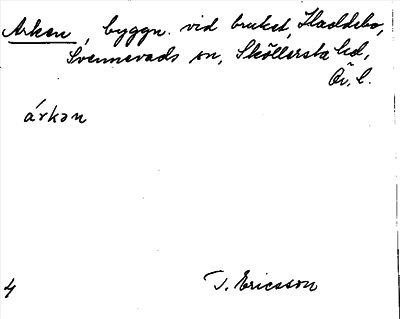 Arken, byggn. vid bruket, Haddebo,
Svennevads sn, Sköllersta hd,
Ör. l.
árkən
4
T. Ericsson